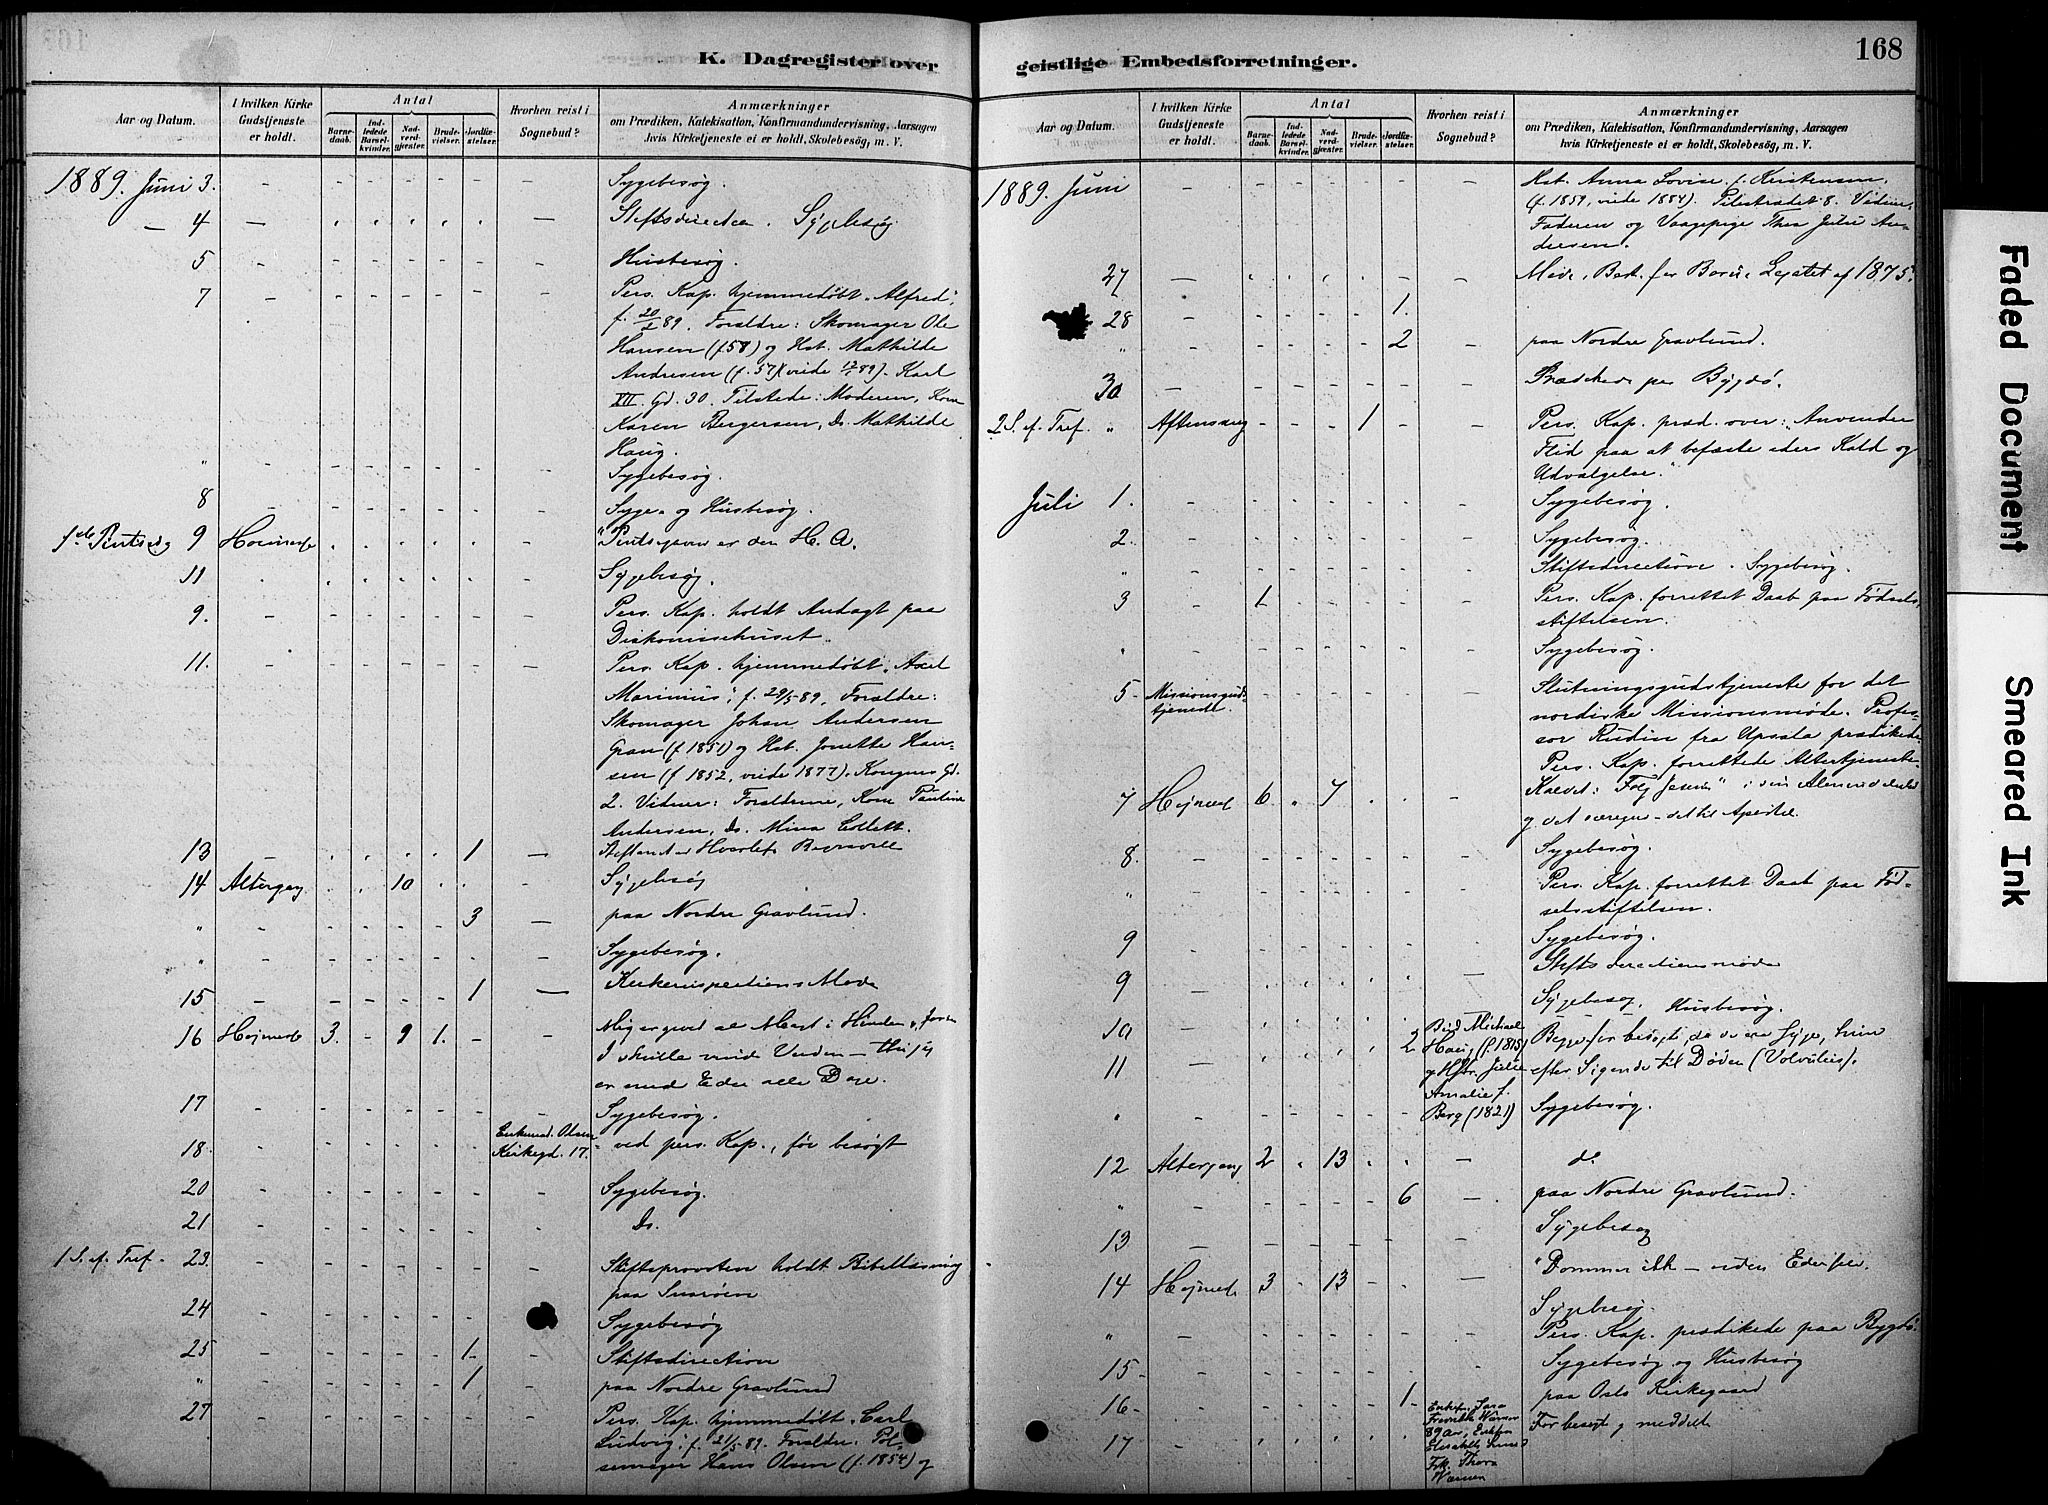 K. Dagregister over
geistlige Embedsforretninger.
168
Aar og Datum.
I hvilken Kirke Gudstjeneste er holdt.
Antal
Barnedaab.
Indledede Barselkvinder.
Nadverdgjæster.
Brudevielser.
Jordfæstelser.
Hvorhen reist i Sognebud?
Anmærkninger
om Prædiken, Katekisation, Konfirmandundervisning, Aarsagen
hvis Kirketjeneste ei er holdt, Skolebesøg, m. V.
1889. Juni 3. Sygebesøg.
4 Stiftsdirection. Sygebesøg
5 Husbesøg.
7 Pers. Kap. hjemmedøbt "Alfred",
f. 20/2 89. Forældre: Skomager Ole
Hansen (f. 58) og Hst. Mathilde
Andresen (f. 57) (viede 89). Karl
XII. Gd. 30. Tilstede: Moderen, Kone
Karen Bergersen, Ds. Mathilde
Haug.
" Sygebesøg.
8 Syge- og Husbesøg.
1ste Pintsedag 9 Høimesse "Pintsegaven er den H. A.
11 Sygebesøg.
9. Pers. Kap. holdt Andagt paa
Diakonissehuset.
11. Pers. Kap. hjemmedøbt "Axel
Marinius", f. 29/5 89. Forældre:
Skomager Johan Andersen
Gran (f. 1851) og Hst. Jonette Han-
sen (f. 1852, viede 1877). Kongens Gd.
2. Vidner: Forældrene, Kone Pauline
Andersen, Ds. Mina Collett.
13 1
14 Altergang 10 Sygebesøg
" 3 paa Nordre Gravlund.
" Sygebesøg.
15 1 Kirkeinspectionsmøde
16 Højmesse 3. 9 1. Mig er given al Magt i Himlen
er med Eder alle Dage.
17 Sygebesøg.
18. Enkemad. Olsen
Kirkegd. 17. ved pers. Kap., før besøgt
20 Sygebesøg.
21 Ds.
1 S. ef. Tref. 23. Stiftsprovsten holdt Bibellæsning
paa
24 Sygebesøg
25 1. Stiftsdirection
" 1 paa Nordre Gravlund
27 Pers. Kap. hjemmedøbt "Carl
Ludvig", f. 21/5 89. Forældre: Pøl-
semager Hans Olsen (f. 1854) og
Aar og Datum.
I hvilken Kirke Gudstjeneste er holdt.
Antal
Barnedaab.
Indledede Barselkvinder.
Nadverdgjæster.
Brudevielser.
Jordfæstelser.
Hvorhen reist i Sognebud?
Anmærkninger
om Prædiken, Katekisation, Konfirmandundervisning, Aarsagen
hvis Kirketjeneste ei er holdt, Skolebesøg, m. V.
1889. Juni Hst. Anna Lovise f. Kristensen
(f. 1859, viede 1884). Pilestrædet 8. Vidner:
Faderen og Vaagepige Thea Julie An-
dersen.
27 Møde, Best. for Legatet af 1875.
28 1.
" 2 paa Nordre Gravlund.
30 Prædikede paa Bygdø.
2 S. ef. Tref. " Aftensang 1 Pers. Kap. præd. over: "Anvender
Flid paa at befæste eders Kald og
Udvælgelse."
Juli 1. Sygebesøg.
2. Sygebesøg.
" Stiftsdirection. Sygebesøg.
3 1 Pers. Kap. forrettet Daab paa Fødsels-
stiftelsen.
" Sygebesøg.
5 Missionsguds-
tjeneste. Slutningsgudstjeneste for det
nordiske Missionsmøde. Profes-
sor Rudin fra Upsala prædikede.
Pers. Kap. forrettede Altertjeneste
7 Højmesse 6 " 7 Kaldet: "Følg Jesum" i sin Almindelighed
og det særegne - det til Apostel.
8. Sygebesøg.
" Pers. Kap. forrettet Daab paa Fød-
selsstiftelsen.
9 Sygebesøg.
9 Stiftsdirectionsmøde
10 Sygebesøg. Husbesøg.
11 2 Michael
Haug (f. 1815)
og Hstr. Julie
Amalie f.
Berg (1821) Begge før besøgt, da de ere syge, hun
efter Sigende til Døden (Volvulus).
" Sygebesøg.
12 Altergang 2 " 13 ds.
" 6 paa Nordre Gravlund.
13 Sygebesøg
14 Højmesse 3 13 "Dommer ikke
Sygebesøg.
" Pers. Kap. prædikede paa Bygdø.
15 Sygebesøg og Husbesøg
16 1 paa Oslo Kirkegaard
17 Enkefr. Sara
Fredrikke
89 Aar, Enkefru
Elisabeth
Frk. Thora
Før besøgt og meddelt
Faded Document
Smeared Ink